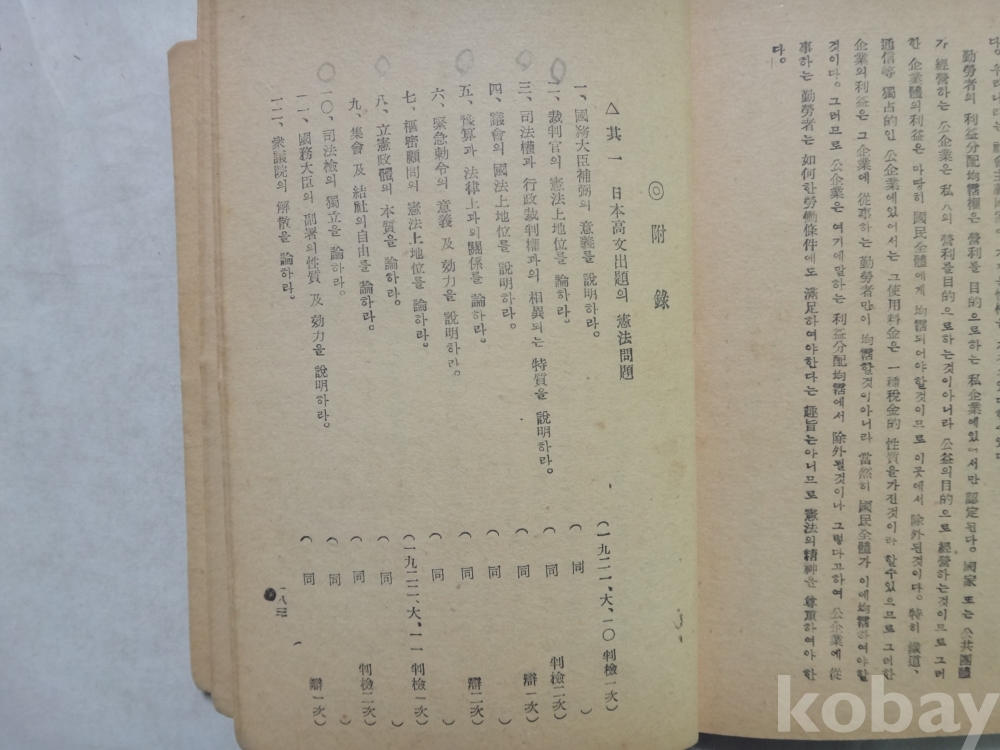 다.
勤勞者의 利益分配均霑權은 營利를 目的으로하는 私企業에있어서만 認定된다。國家 또는 公共團體
가 經營하는 公企業은 私人의 營利를目的으로하는것이아니라 公益의目的으로 經營하는것이므로 그러
한 企業體의利益은 마땅히 國民全體에게 均霑되어야할것이므로 이곳에서 除外된것이다。特히 鐵道、
通信等 獨占的인 公企業에있어서는 그使用料金은 一種稅金的 性質을가진것이라 할수있으므로 그러한
企業의利益은 그企業에 從事하는 勤勞者만이 均霑할것이아니라 當然히 國民全體가 이에均霑하여야할
것이다。그러므로 公企業은 여기에말하는 利益分配均霑에서 除外될것이나 그렇다고하여 公企業에 從
事하는 勤勞者는 如何한勞働條件에도 滿足하여야한다는 趣旨는아니므로 憲法의精神을 尊重하여야 한
다。
◎ 附 錄
△ 其 一 日本高文出題의 憲法問題
(一九二一、大、一〇 判檢一次)
一、國務大臣補弼의 意義를 說明하라。 ( 同 )
二、裁判官의 憲法上地位를 論하라。 ( 同 判檢二次)
三、司法權과 行政裁判權과의 相異되는 特質을 說明하라。 ( 同 辯一次)
四、議會의 國法上地位를 說明하라。 ( 同 )
五、豫算과 法律上과의關係를 論하라。 ( 同 辯二次)
六、緊急勅令의 意義 及 効力을 說明하라。 ( 同 )
七、樞密顧問의 憲法上地位를 論하라。 (一九二二、大、一一 判檢一次)
八、立憲政體의 本質을 論하라。 ( 同 )
九、集會 及 結社의自由를 論하라。 ( 同 判檢二次)
一〇、司法檢의 獨立을 論하라。 ( 同 )
一一、國務大臣의 副署의性質 及 効力을 說明하라。 ( 同 辯一次)
一二、衆議院의 解散을 論하라。
一八三
kobay